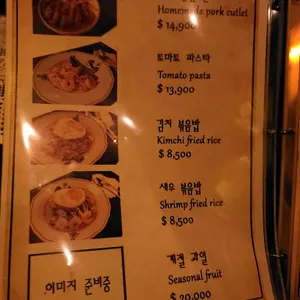 Homemade pork cutlet
$ 14,900
토마토 파스타
Tomato pasta
$ 13,900
김치 볶음밥
Kimchi fried rice
$ 8,500
새우 볶음밥
Shrimp fried rice
$ 8,500
계절 과일
Seasonal fruit
$ 20,000
이미지 준비중